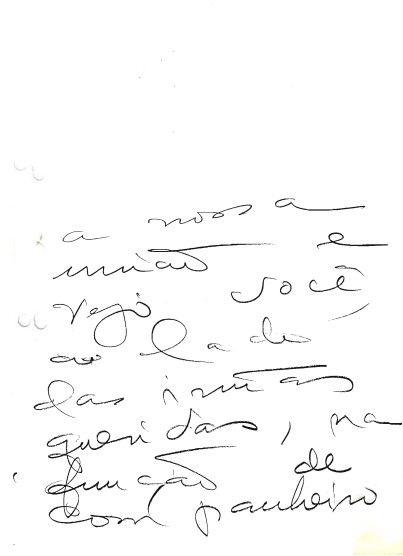 a nossa
união e
vejo você,
ao lado
das irmãs
queridas, na
função de
companheiro